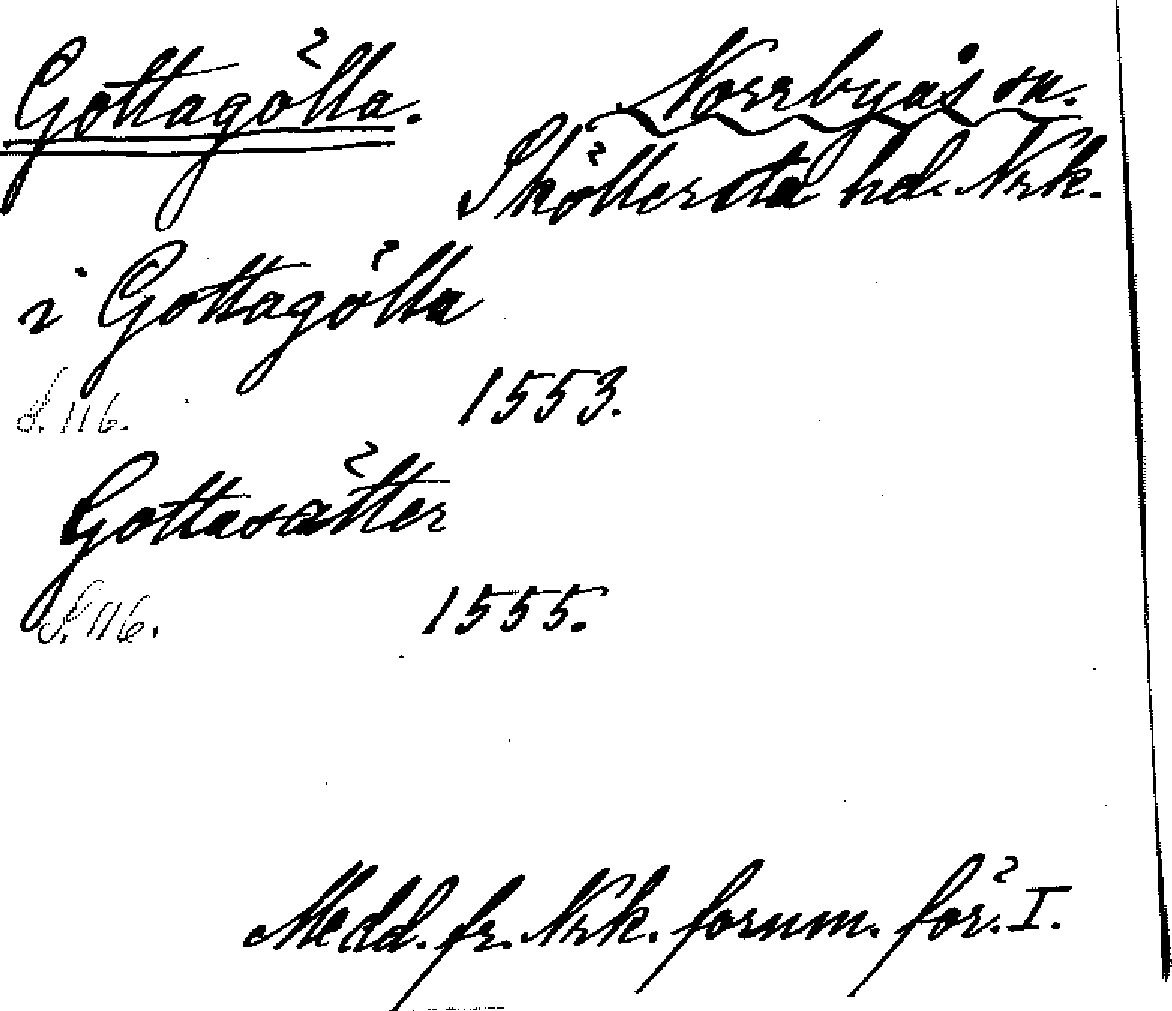 Gottagölla. Norrbyås sn.
Sköllersta hd. Nrk.
i Gottagölla
S. 116. 1553.
Gottasätter
S. 116. 1555.
Medd. fr. Nrk. fornm. för. I.